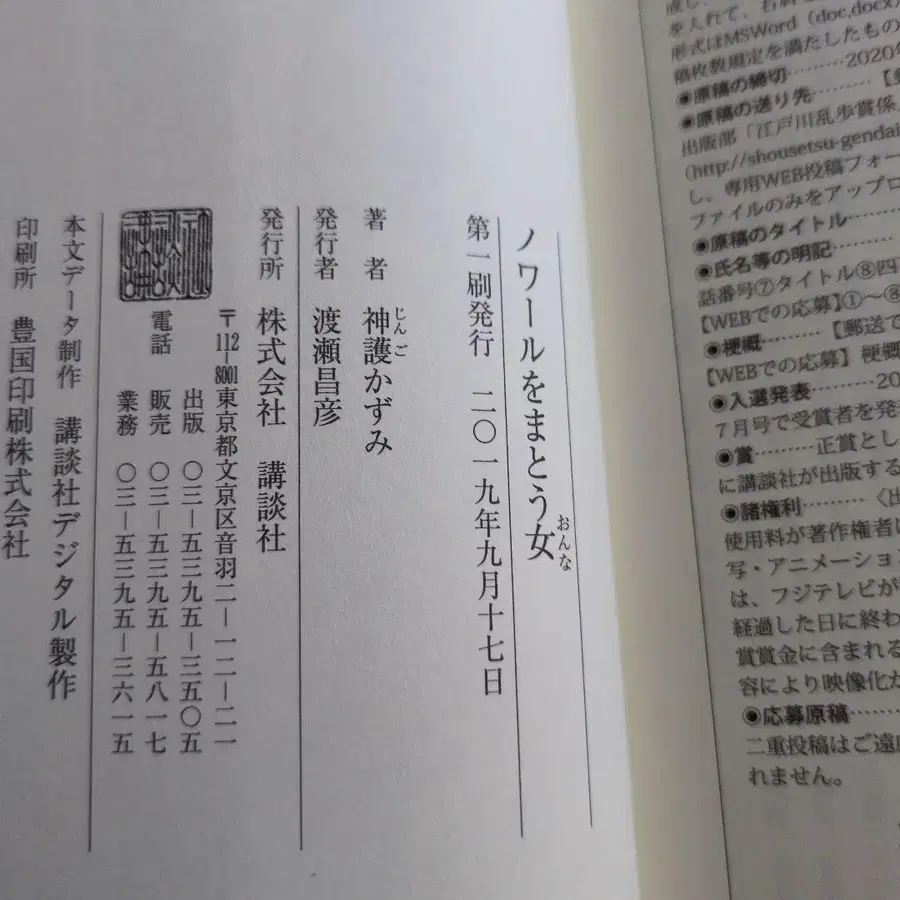 ノワールをまとう女
おんな
第一刷発行 二〇一九年九月十七日
著者 神護かずみ
じんご
発行者 渡瀬昌彦
発行所 株式会社 講談社
〒112-8001東京都文京区音羽二-一二-二一
電話 出版 〇三-五三九五-三五〇五
販売 〇三-五三九五-五八一七
業務 〇三-五三九五-三六一五
本文データ制作 講談社デジタル製作
印刷所 豊国印刷株式会社
を入れて、右肩
形式はMSWord(doc,docx)
稿枚数規定を満たしたもの
◉原稿の締切………2020年
◉原稿の送り先………【
出版部「江戸川乱歩賞係」
(http://shousetsu-gendai
し、専用WEB投稿フォー
ファイルのみをアップロ
◉原稿のタイトル………
◉氏名等の明記………
話番号⑦タイトル⑧四
【WEBでの応募】①〜⑧
◉梗概………【郵送で
【WEBでの応募】梗概
◉入選発表………20
7月号で受賞者を発
◉賞………正賞とし
に講談社が出版する
◉諸権利………〈出
使用料が著作権者に
写・アニメーション
は、フジテレビが
経過した日に終わ
賞賞金に含まれる
容により映像化が
◉応募原稿………
二重投稿はご遠慮
れません。